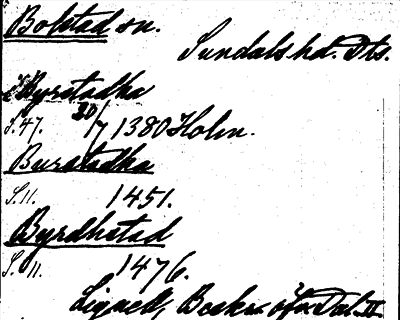 Bolstad sn.
Sundals hd. Dls.
i Byrstadha
S. 47. 20/7 1380 Holm.
Burstadha
S. 11. 1451.
Byrdhstad
S. 11. 1476.
Lignell, Beskr. öfver Dal. II